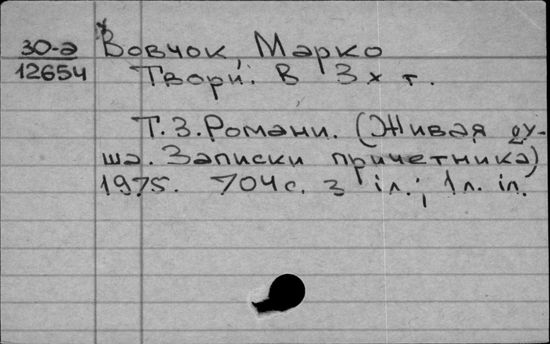 30-а Вовчок, Марко
12654 Твори: В 3х т.
Т.3. Романи. (Живая ду-
ша. Записки причетника)
1975. 704с. з іл.; 1л. іл.